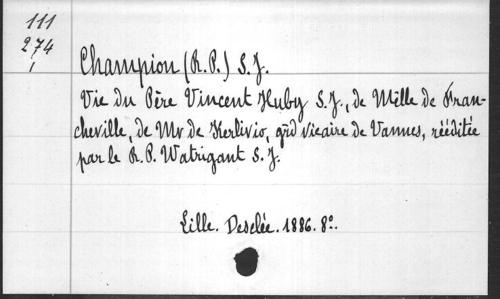 111
274
1
Champion (R.P.) S.J.
Vie du Père Vincent Huby S.J., de Mlle de Fran-
cheville, de Mr de Kerlivio, grd vicaire de Vannes, rééditée
par le R.P. Watrigant S.J.
Lille. Desclée. 1886. 8º.